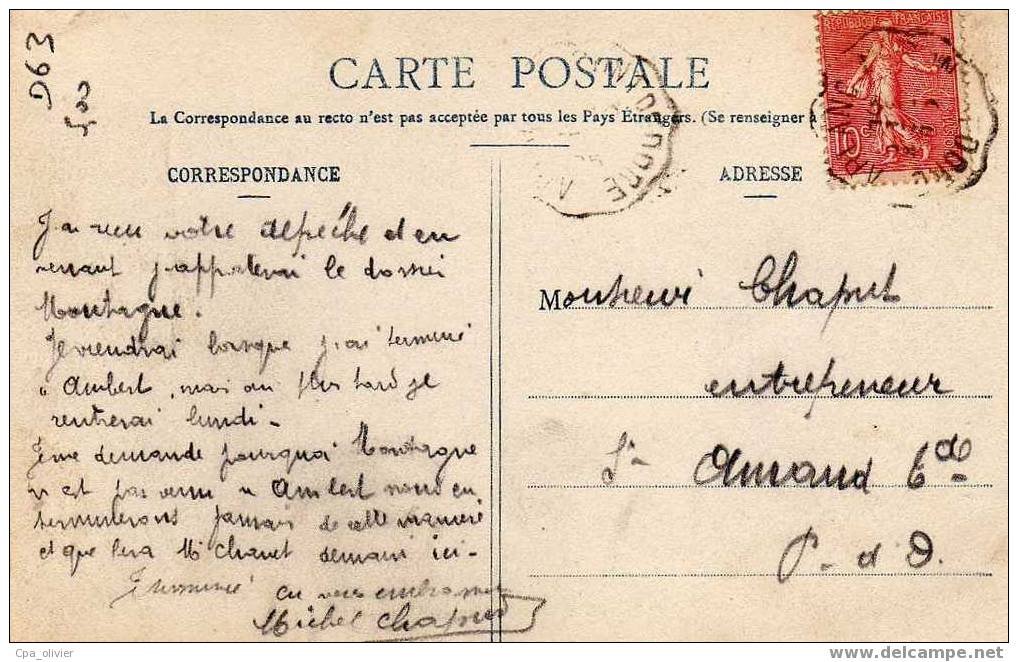 D63
500
RÉPUBLIQUE FRANÇAISE
CARTE POSTALE
La Correspondance au recto n'est pas acceptée par tous les Pays Étrangers. (Se renseigner à
CORRESPONDANCE
J'ai reçu votre dépêche et en
venant j'apporterai le dossier
Montagne.
Je viendrai lorsque j'ai terminé
a Ambert, mais au plus tard je
rentrerai lundi -
Je me demande pourquoi Montagne
n'est pas venu a Ambert nous en
terminerons jamais de cette manière
et que fera Mr Chanet demain ici -
en vous embrassant
Michel Chaput
ADRESSE
10c
Monsieur Chaput
entrepreneur
St Amand Tde
P. d D.
Cpa_olivier
www.delcampe.net